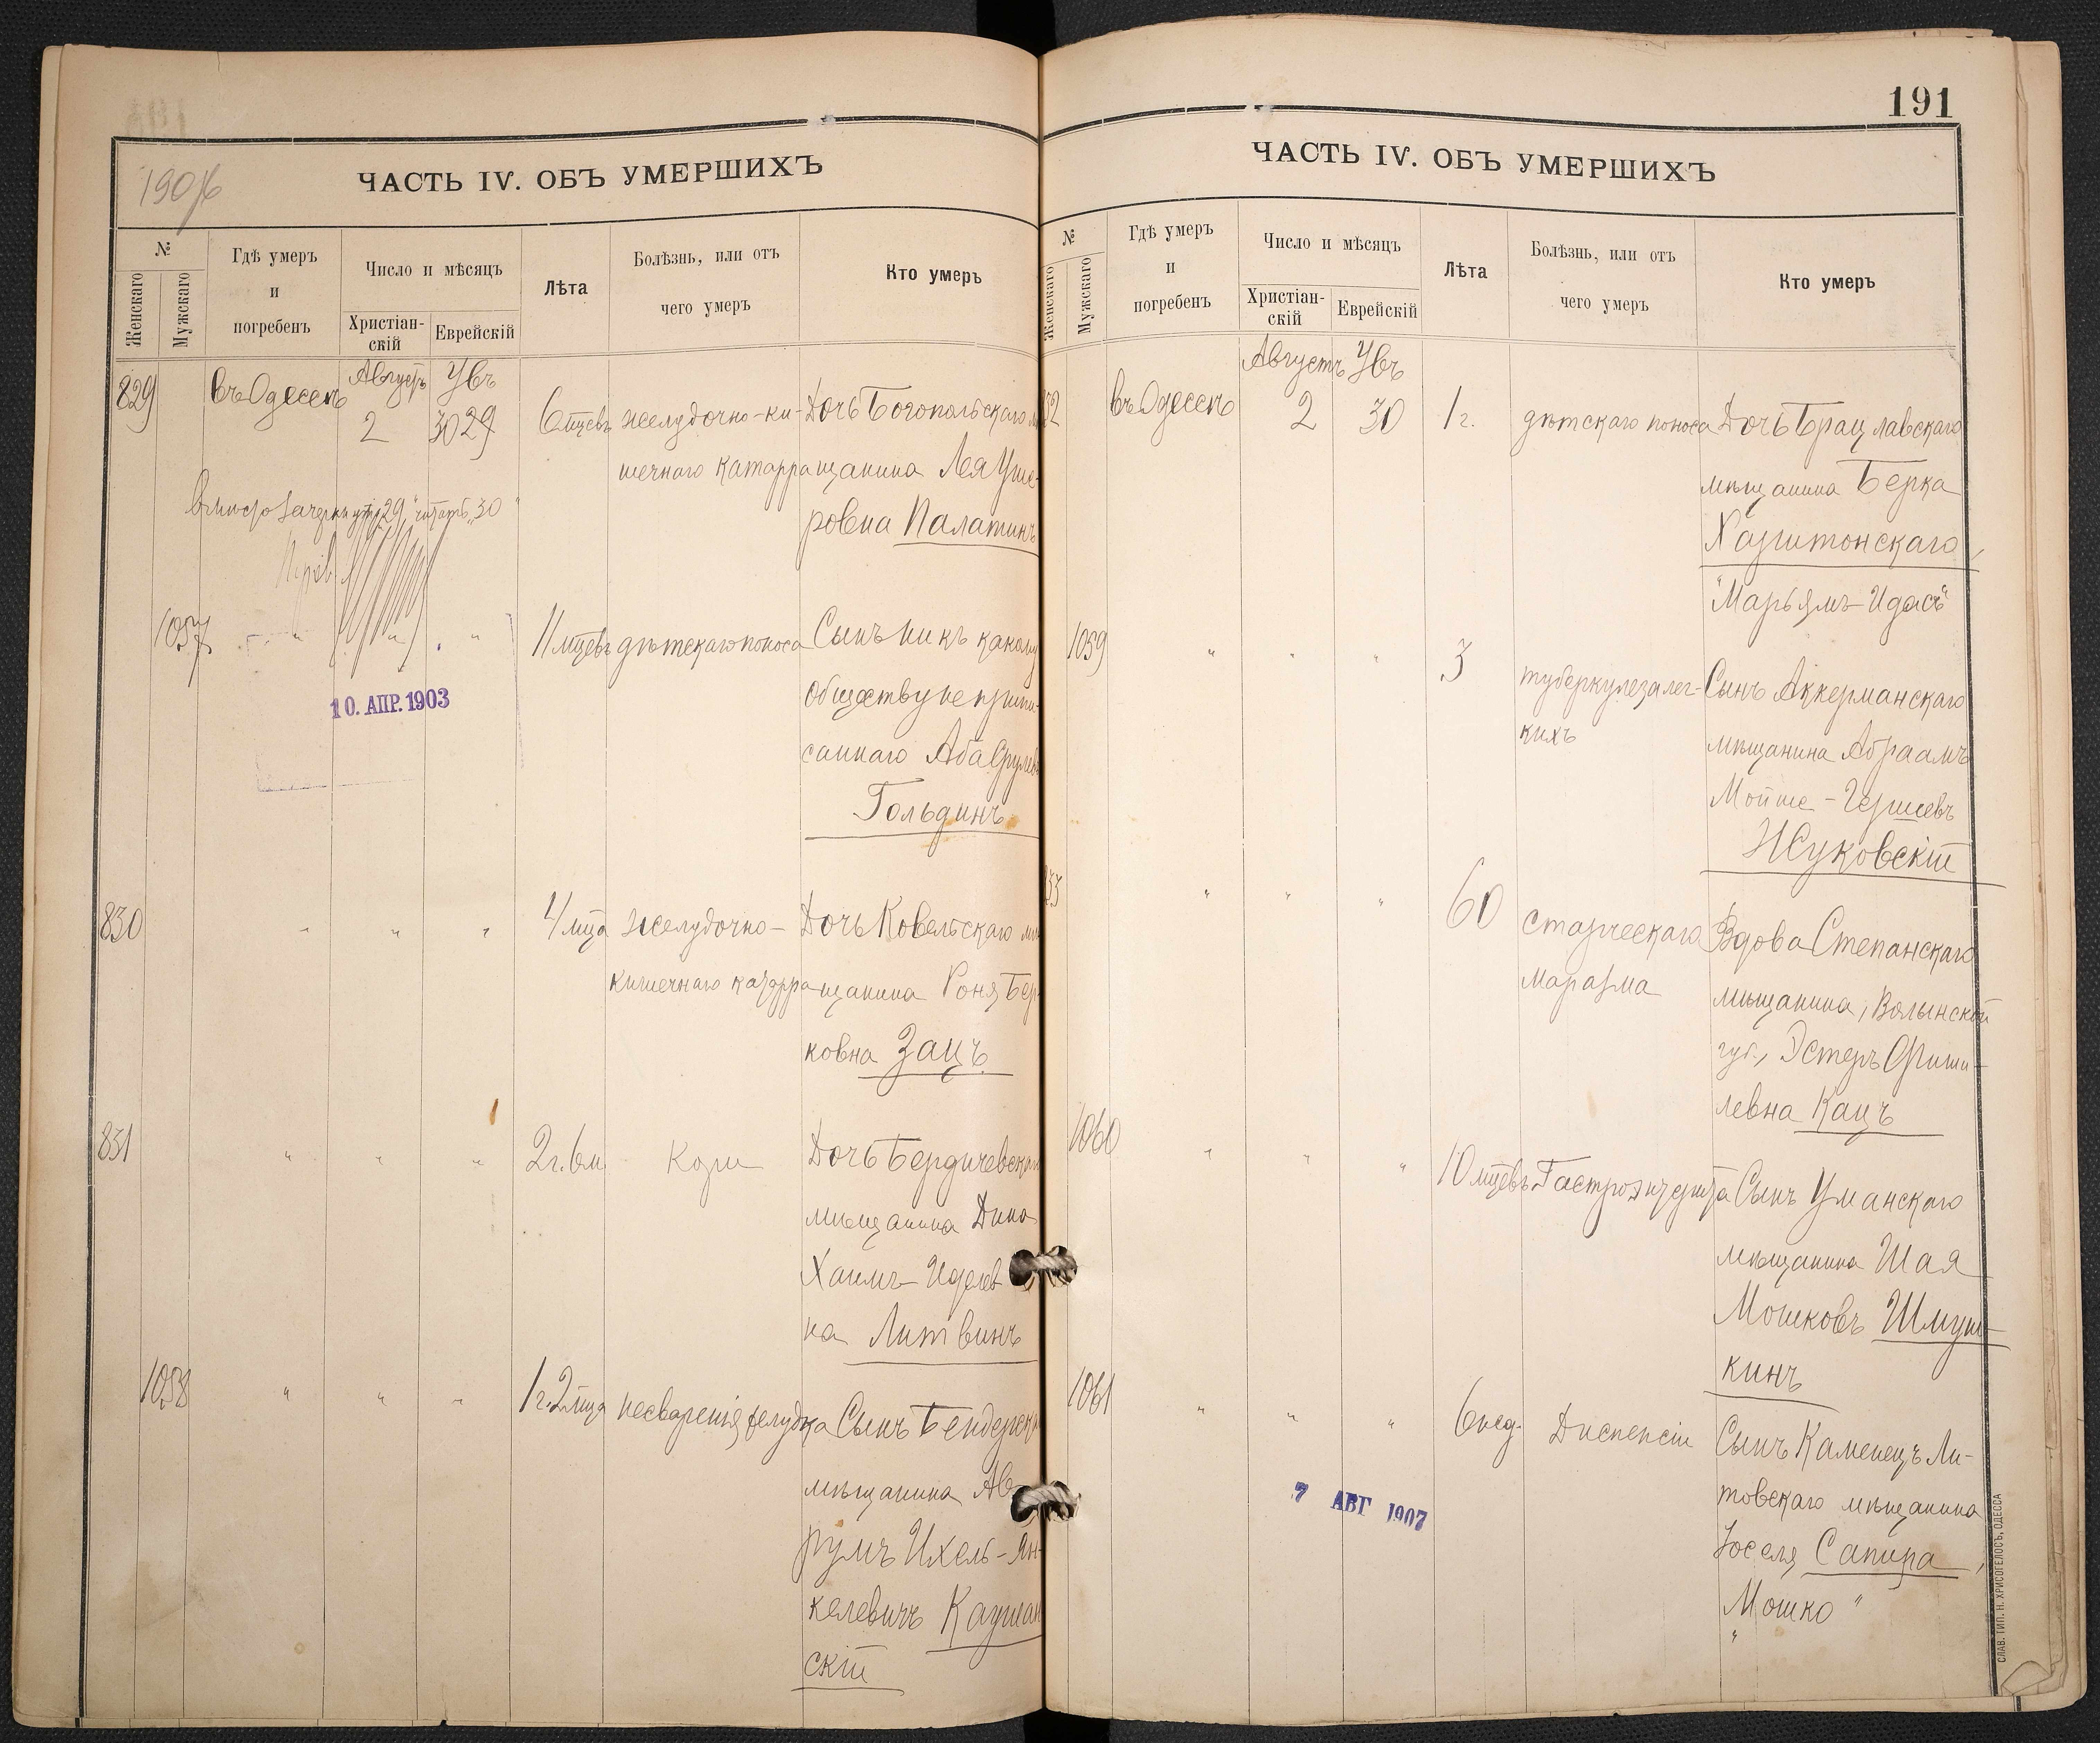 191
1906
ЧАСТЬ IV. ОБЪ УМЕРШИХЪ
№
Женскаго
Мужскаго
Гдѣ умеръ
и
погребенъ
Число и мѣсяцъ
Христіан-
скій
Еврейскій
Лѣта
Болѣзнь, или отъ
чего умеръ
Кто умеръ
829
въ Одессѣ
Августъ
2
Увъ
30 29
6 мцевъ
желудочно-ки-
шечнаго катарра
Дочь Богопольскаго
щанина Лея Уше-
ровна Палатинъ
вмѣсто зачеркнут. „29“ читать „30“
1057
" " " "
11 мцевъ
дѣтскаго поноса
Сынъ ни къ какому
обществу не припи-
саннаго Аба Срулевъ
Гольдинъ
10. АПР. 1903
830
" " "
4 мца
желудочно-
кишечнаго катарра
Дочь Ковельскаго мѣ
щанина Роня Бер-
ковна Зацъ
831
" " "
2 г. 6 м.
Кори
Дочь Бердичевскаго
мѣщанина Дина
Хаимъ-Иделев
на Литвинъ
1058
" " "
1 г. 2 мца
несваренія желудка
Сынъ Бендерск
мѣщанина Ав-
румъ Ихель-Ян-
келевичъ Каушан
скій
ЧАСТЬ IV. ОБЪ УМЕРШИХЪ
№
Женскаго
Мужскаго
Гдѣ умеръ
и
погребенъ
Число и мѣсяцъ
Христіан-
скій
Еврейскій
Лѣта
Болѣзнь, или отъ
чего умеръ
Кто умеръ
32
въ Одессѣ
Августъ
2
Увъ
30
1 г.
дѣтскаго поноса
Дочь Брацлавскаго
мѣщанина Берка
Хащитонскаго,
"Марьямъ-Идасъ"
1059
" " "
3
туберкулеза лег-
кихъ
Сынъ Аккерманскаго
мѣщанина Абраамъ
Мойше-Гершевъ
Жуковскій
33
" " "
60
старческаго
маразма
Вдова Степанскаго
мѣщанина, Волынской
губ., Эстеръ Фиши-
левна Кацъ
1060
" " "
10 мцевъ
Гастроэнтерита
Сынъ Уманскаго
мѣщанина Шая
Мошковъ Шмуш-
кинъ
1061
" " "
6 нед.
Диспепсіи
Сынъ Каменецъ Ли-
товскаго мѣщанина
Іоселя Сапира,
"Мошко"
7 АВГ 1907
СЛАВ. ТИП. Н. ХРИСОГЕЛОСЪ, ОДЕССА